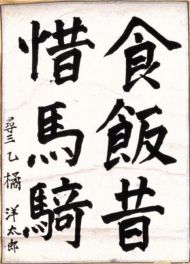 食飯昔
惜馬騎
尋三乙 橘 洋太郎